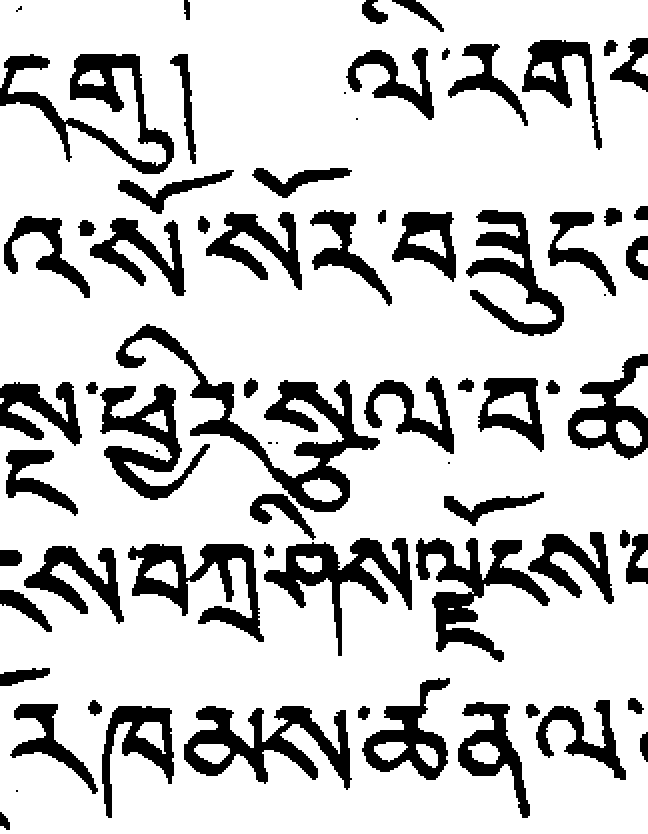 དགུ། ལེ་རག་
འ་སོ་སོར་བཟུང་
སྔ་ཕྱིར་སྩལ་བ་ཚ
ངས་བཀྲ་ཤིས་ལྗོངས་
ར་ཁམས་ཚན་ལ་